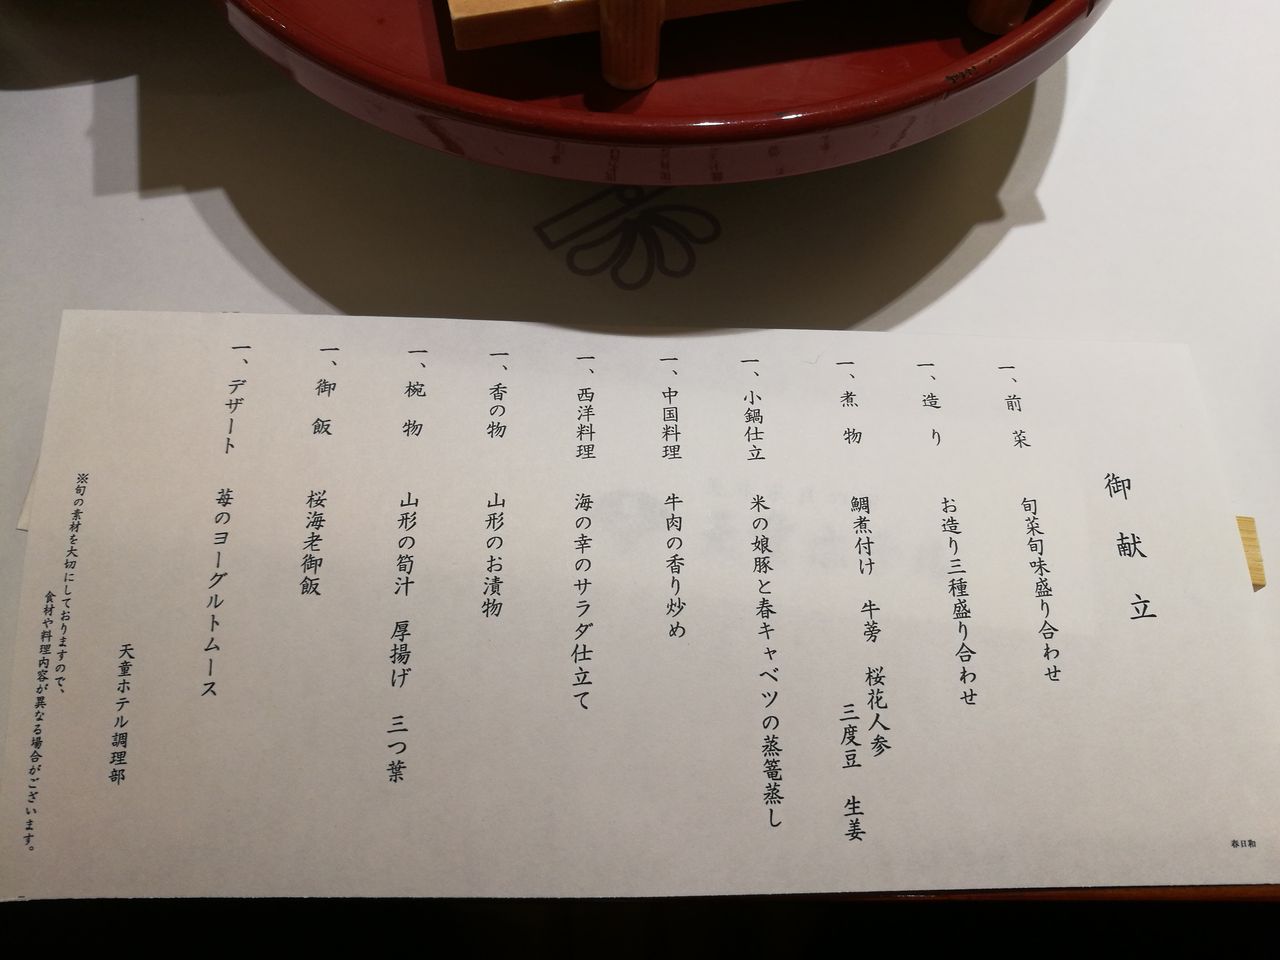 御献立
一、前菜 旬菜旬味盛り合わせ
一、造り お造り三種盛り合わせ
一、煮物 鯛煮付け 牛蒡 桜花人参
三度豆 生姜
一、小鍋仕立 米の娘豚と春キャベツの蒸篭蒸し
一、中国料理 牛肉の香り炒め
一、西洋料理 海の幸のサラダ仕立て
一、香の物 山形のお漬物
一、椀物 山形の筍汁 厚揚げ 三つ葉
一、御飯 桜海老御飯
一、デザート 苺のヨーグルトムース
天童ホテル調理部
※旬の素材を大切にしておりますので、
食材や料理内容が異なる場合がございます。
春日和